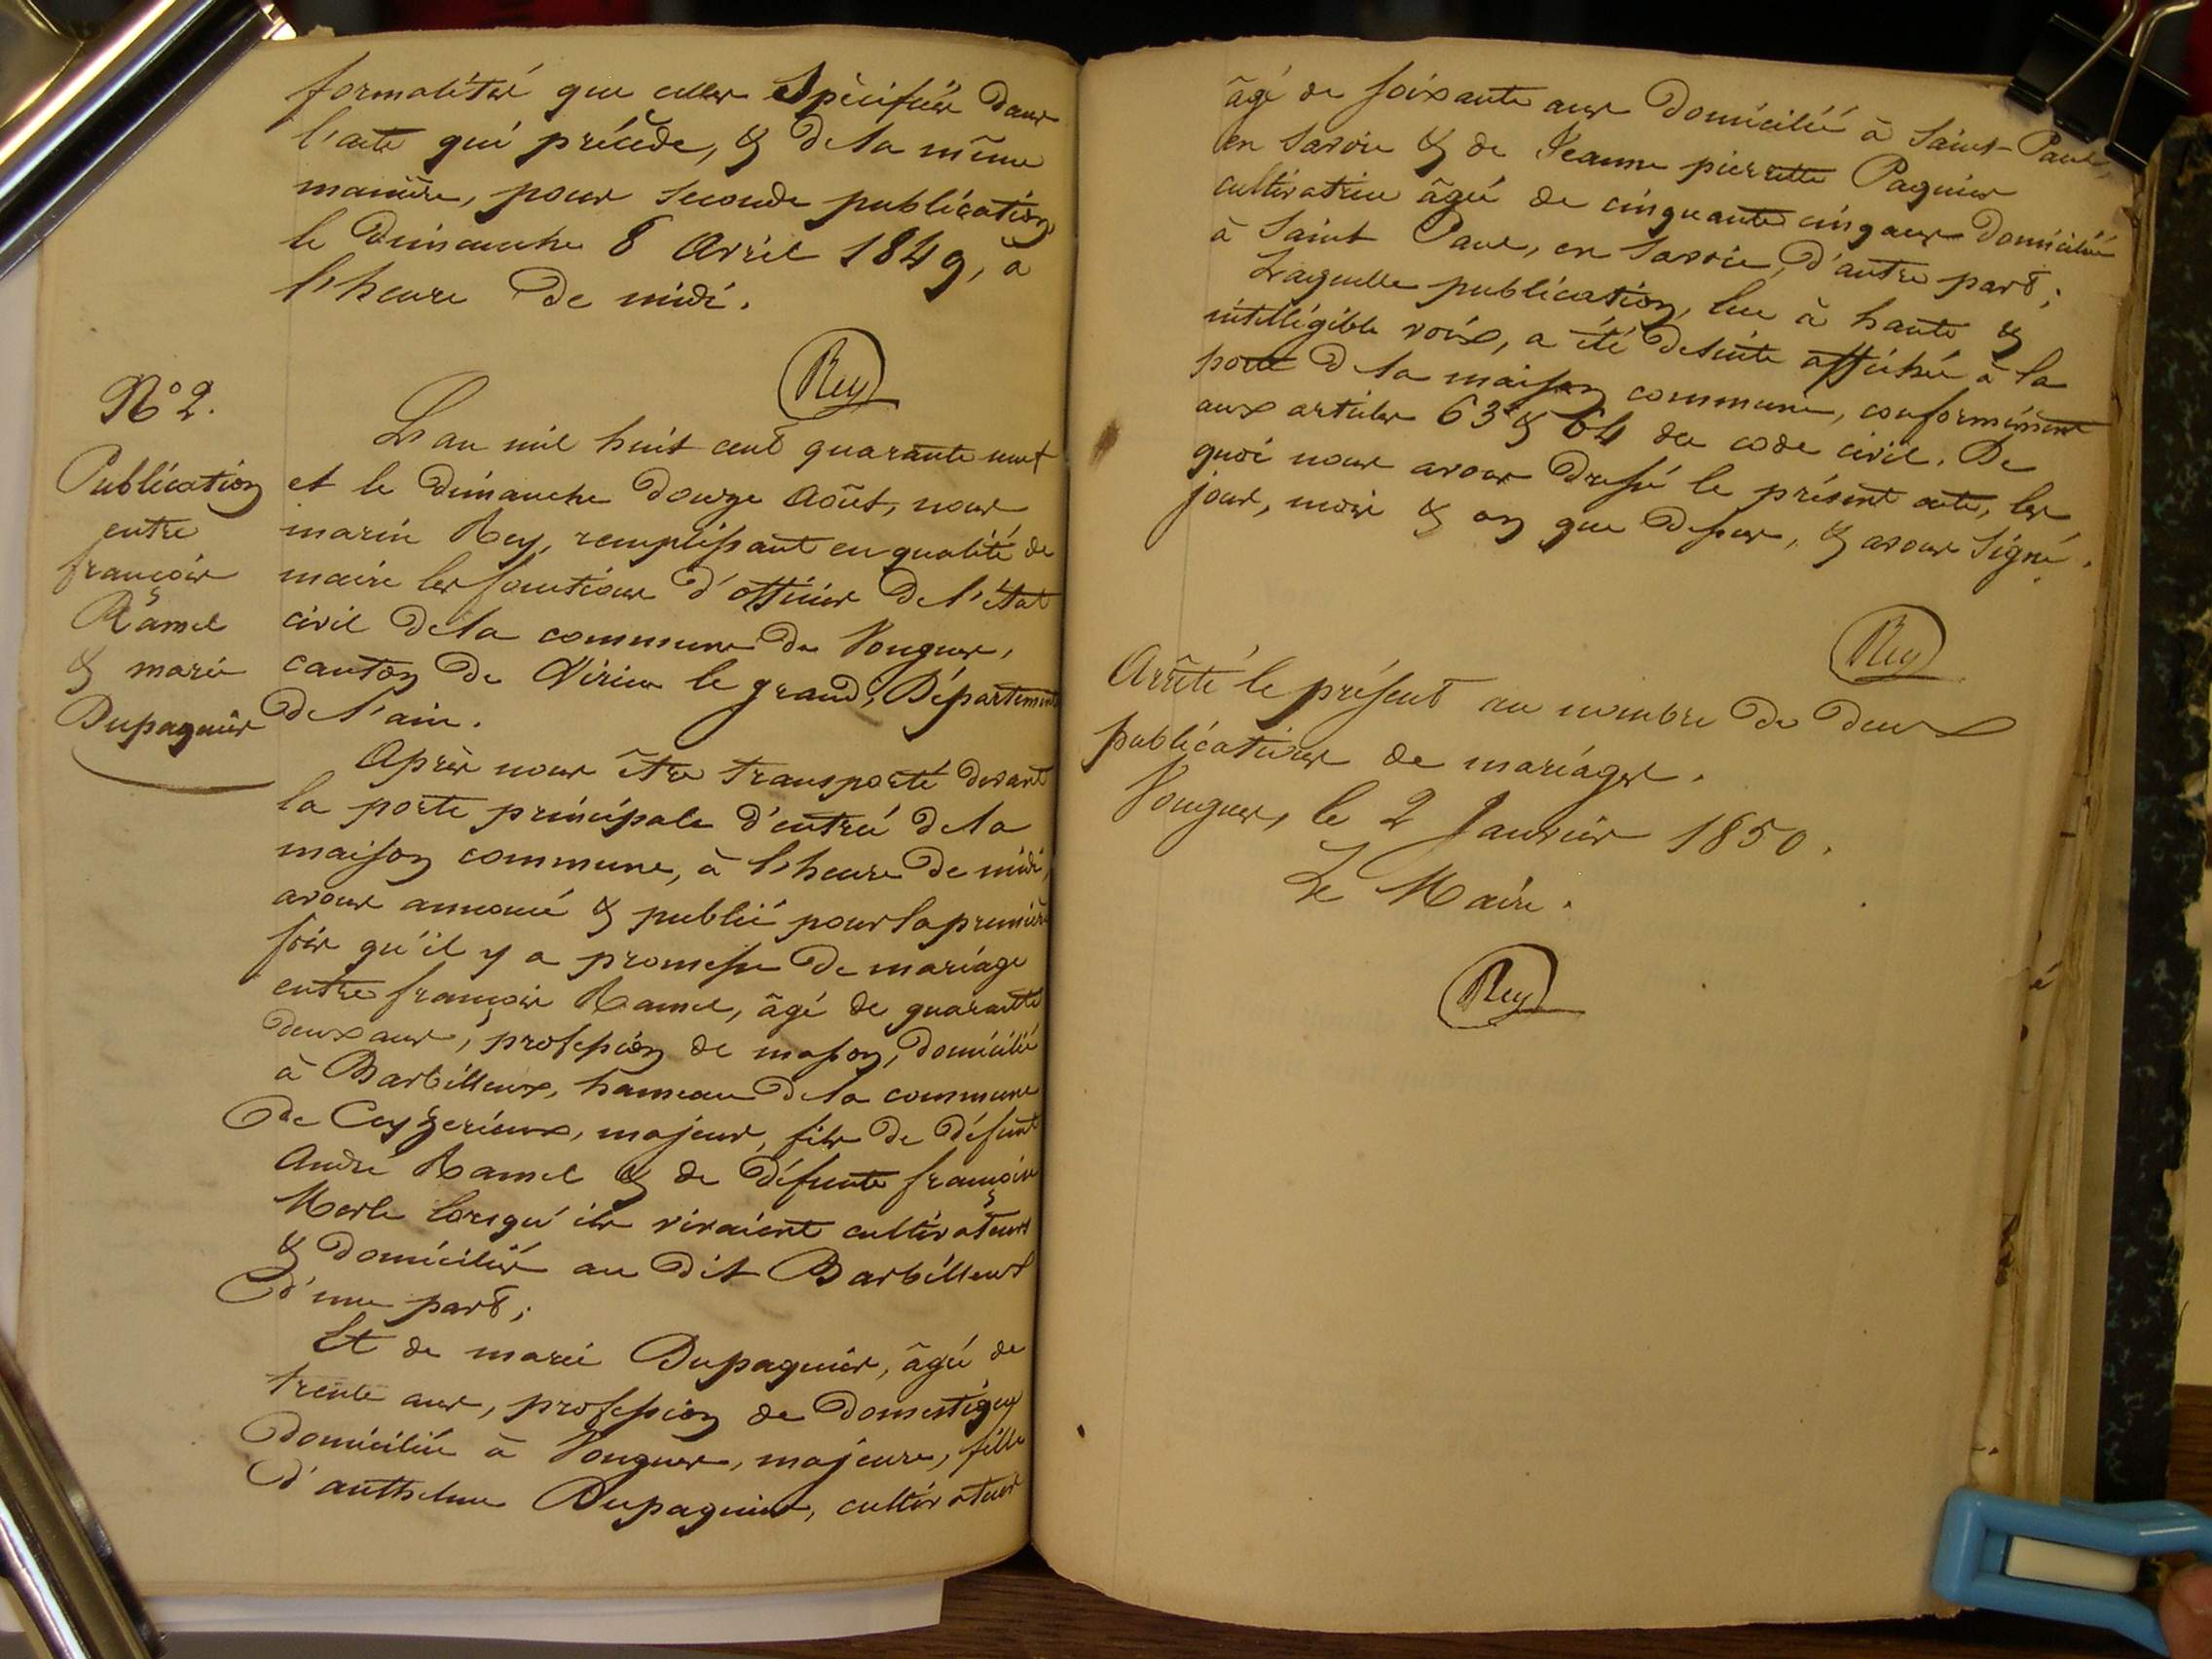 formalités que celles Spécifiées dans
l'acte qui précède, & de la même
manière, pour seconde publication
le dimanche 8 Avril 1849, à
l'heure de midi.
Rey
N.º 2.
Publication
entre
françois
Ramel
& marie
Dupaquier
L'an mil huit cent quarante neuf
et le dimanche douze Août, nous
marin Rey, remplissant en qualité de
maire les fonctions d'officier de l'état
civil de la commune de Vongnes,
canton de Virieu le grand, Département
de l'ain.
Après nous être transporté devant
la porte principale d'entrée de la
maison commune, à l'heure de midi,
avons annoncé & publié pour la première
fois qu'il y a promesse de mariage
entre françois Ramel, âgé de quarante
deux ans, profession de maçon, domicilié
à Barbilleux, hameau de la commune
de Ceyzerieux, majeur, fils de défunt
André Ramel & de défunte françoise
Merle lorsqu'ils vivaient cultivateurs
& domiciliés au dit Barbilleux
d'une part;
Et de marie Dupaquier, âgée de
trente ans, profession de domestique
domiciliée à Vongnes, majeure, fille
d'anthelme Dupaquier, cultivateur
âgé de soixante ans domicilié à Saint-Paul,
en Savoie & de Jeanne pierrette Paquier
cultivatrice âgée de cinquante cinq ans domiciliée
à Saint Paul, en Savoie, d'autre part;
Laquelle publication, lue à haute &
intelligible voix, a été desuite affichée à la
porte de la maison commune, conformément
aux articles 63 & 64 du code civil. De
quoi nous avons dressé le présent acte, les
jour, mois & an que dessus, & avons signé.
Rey
Arrêté le présent au nombre de deux
publications de mariages.
Vongnes, le 2 Janvier 1850.
Le Maire.
Rey